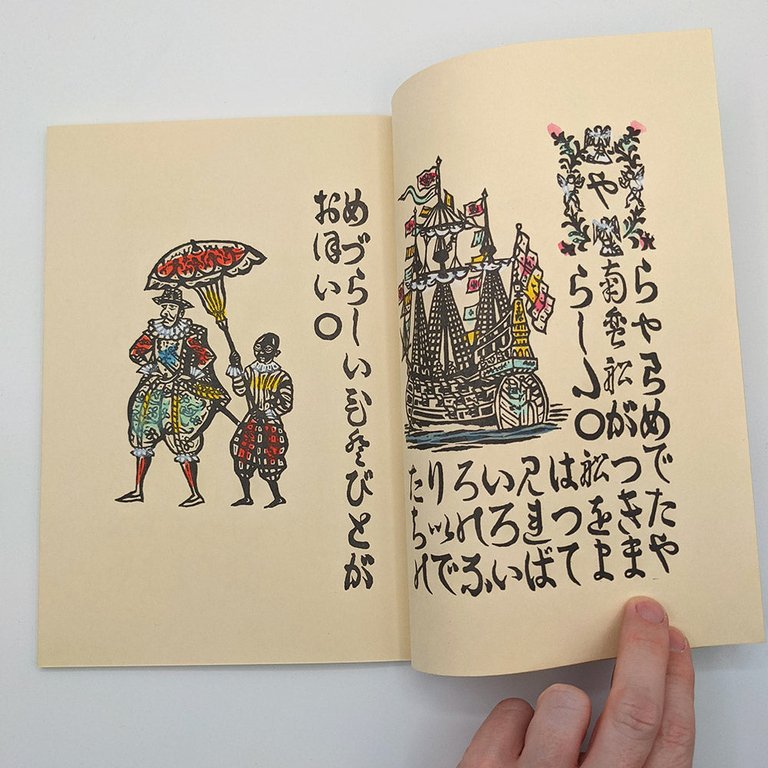 や
らやらめでたや
南蛮船がつきま
らした〇船をま
はつて見れば
いろいろのな
りいでたちの
めづらしいびとが
おほい〇